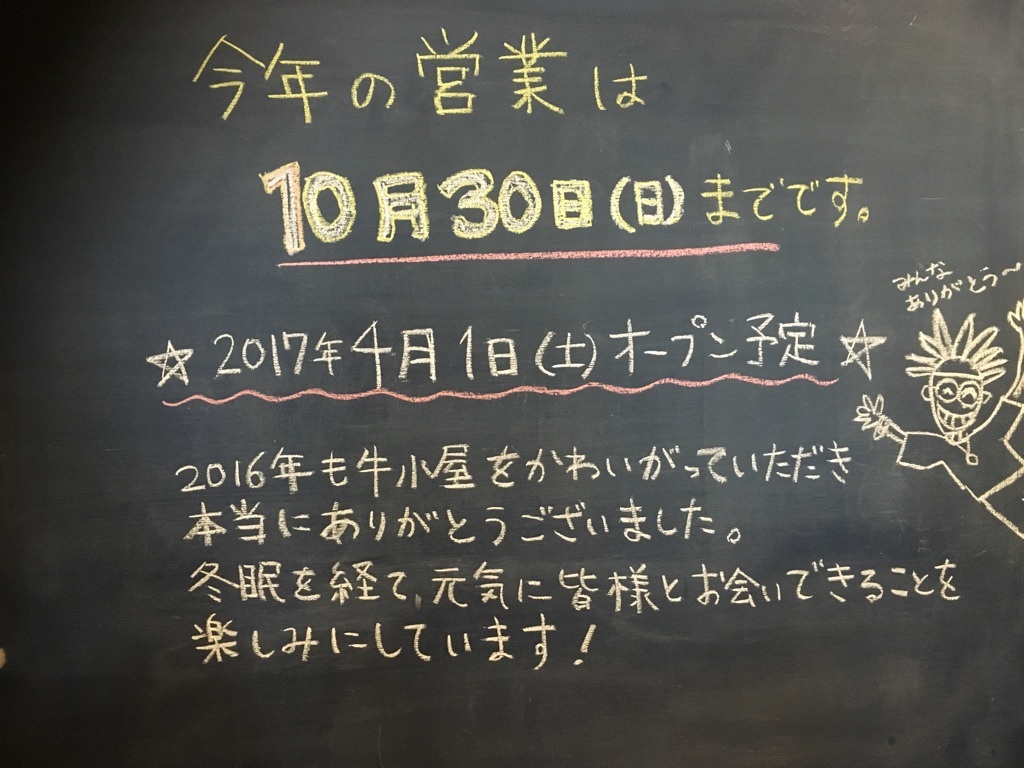 今年の営業は
10月30日(日)までです。
みんな
ありがとう～
☆2017年4月1日(土)オープン予定☆
2016年も牛小屋をかわいがっていただき
本当にありがとうございました。
冬眠を経て、元気に皆様とお会いできることを
楽しみにしています!